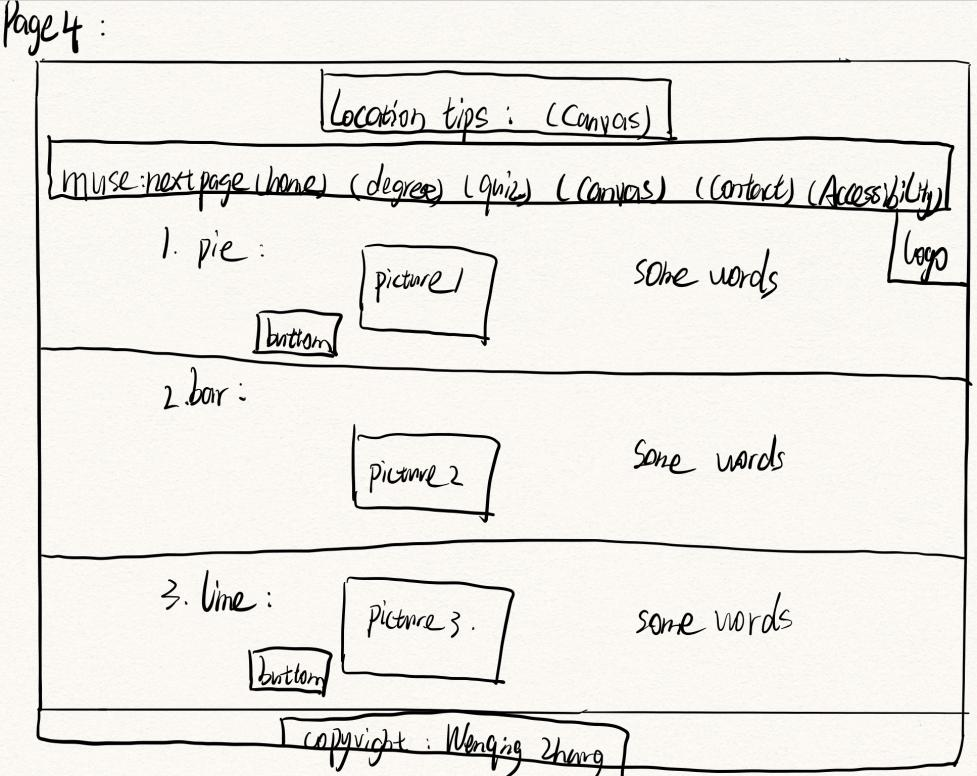 Page 4 :
Location tips : (Canvas)
muse:next page (home) (degree) (quiz) (Canvas) (Contact) (Accessibility)
Logo
1. pie :
picture 1
some words
button
2. bar :
picture 2
some words
3. line :
picture 3.
some words
button
copyright : Wenqing Zhang